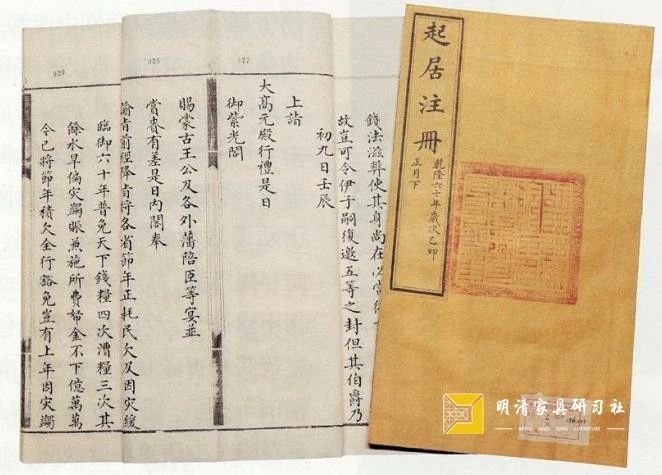 起居注冊
乾隆六十年歲次乙卯
正月下
錢法滋弊使其身尚在必當
故豈可令伊子嗣復邀五等之封但其伯爵乃
初九日壬辰
027
上詣
大高元殿行禮是日
御紫光閣
028
賜蒙古王公及各外藩陪臣等宴並
賞賚有差是日內閣奉
諭旨前經降旨將各省節年正耗民欠及因灾緩
029
臨御六十年普免天下錢糧四次漕糧三次其
餘水旱偏灾蠲賑兼施所費帑金不下億萬萬
令已將節年積欠全行豁免豈有上年因灾蠲
明清家具研习社
MING AND QING FURNITURE